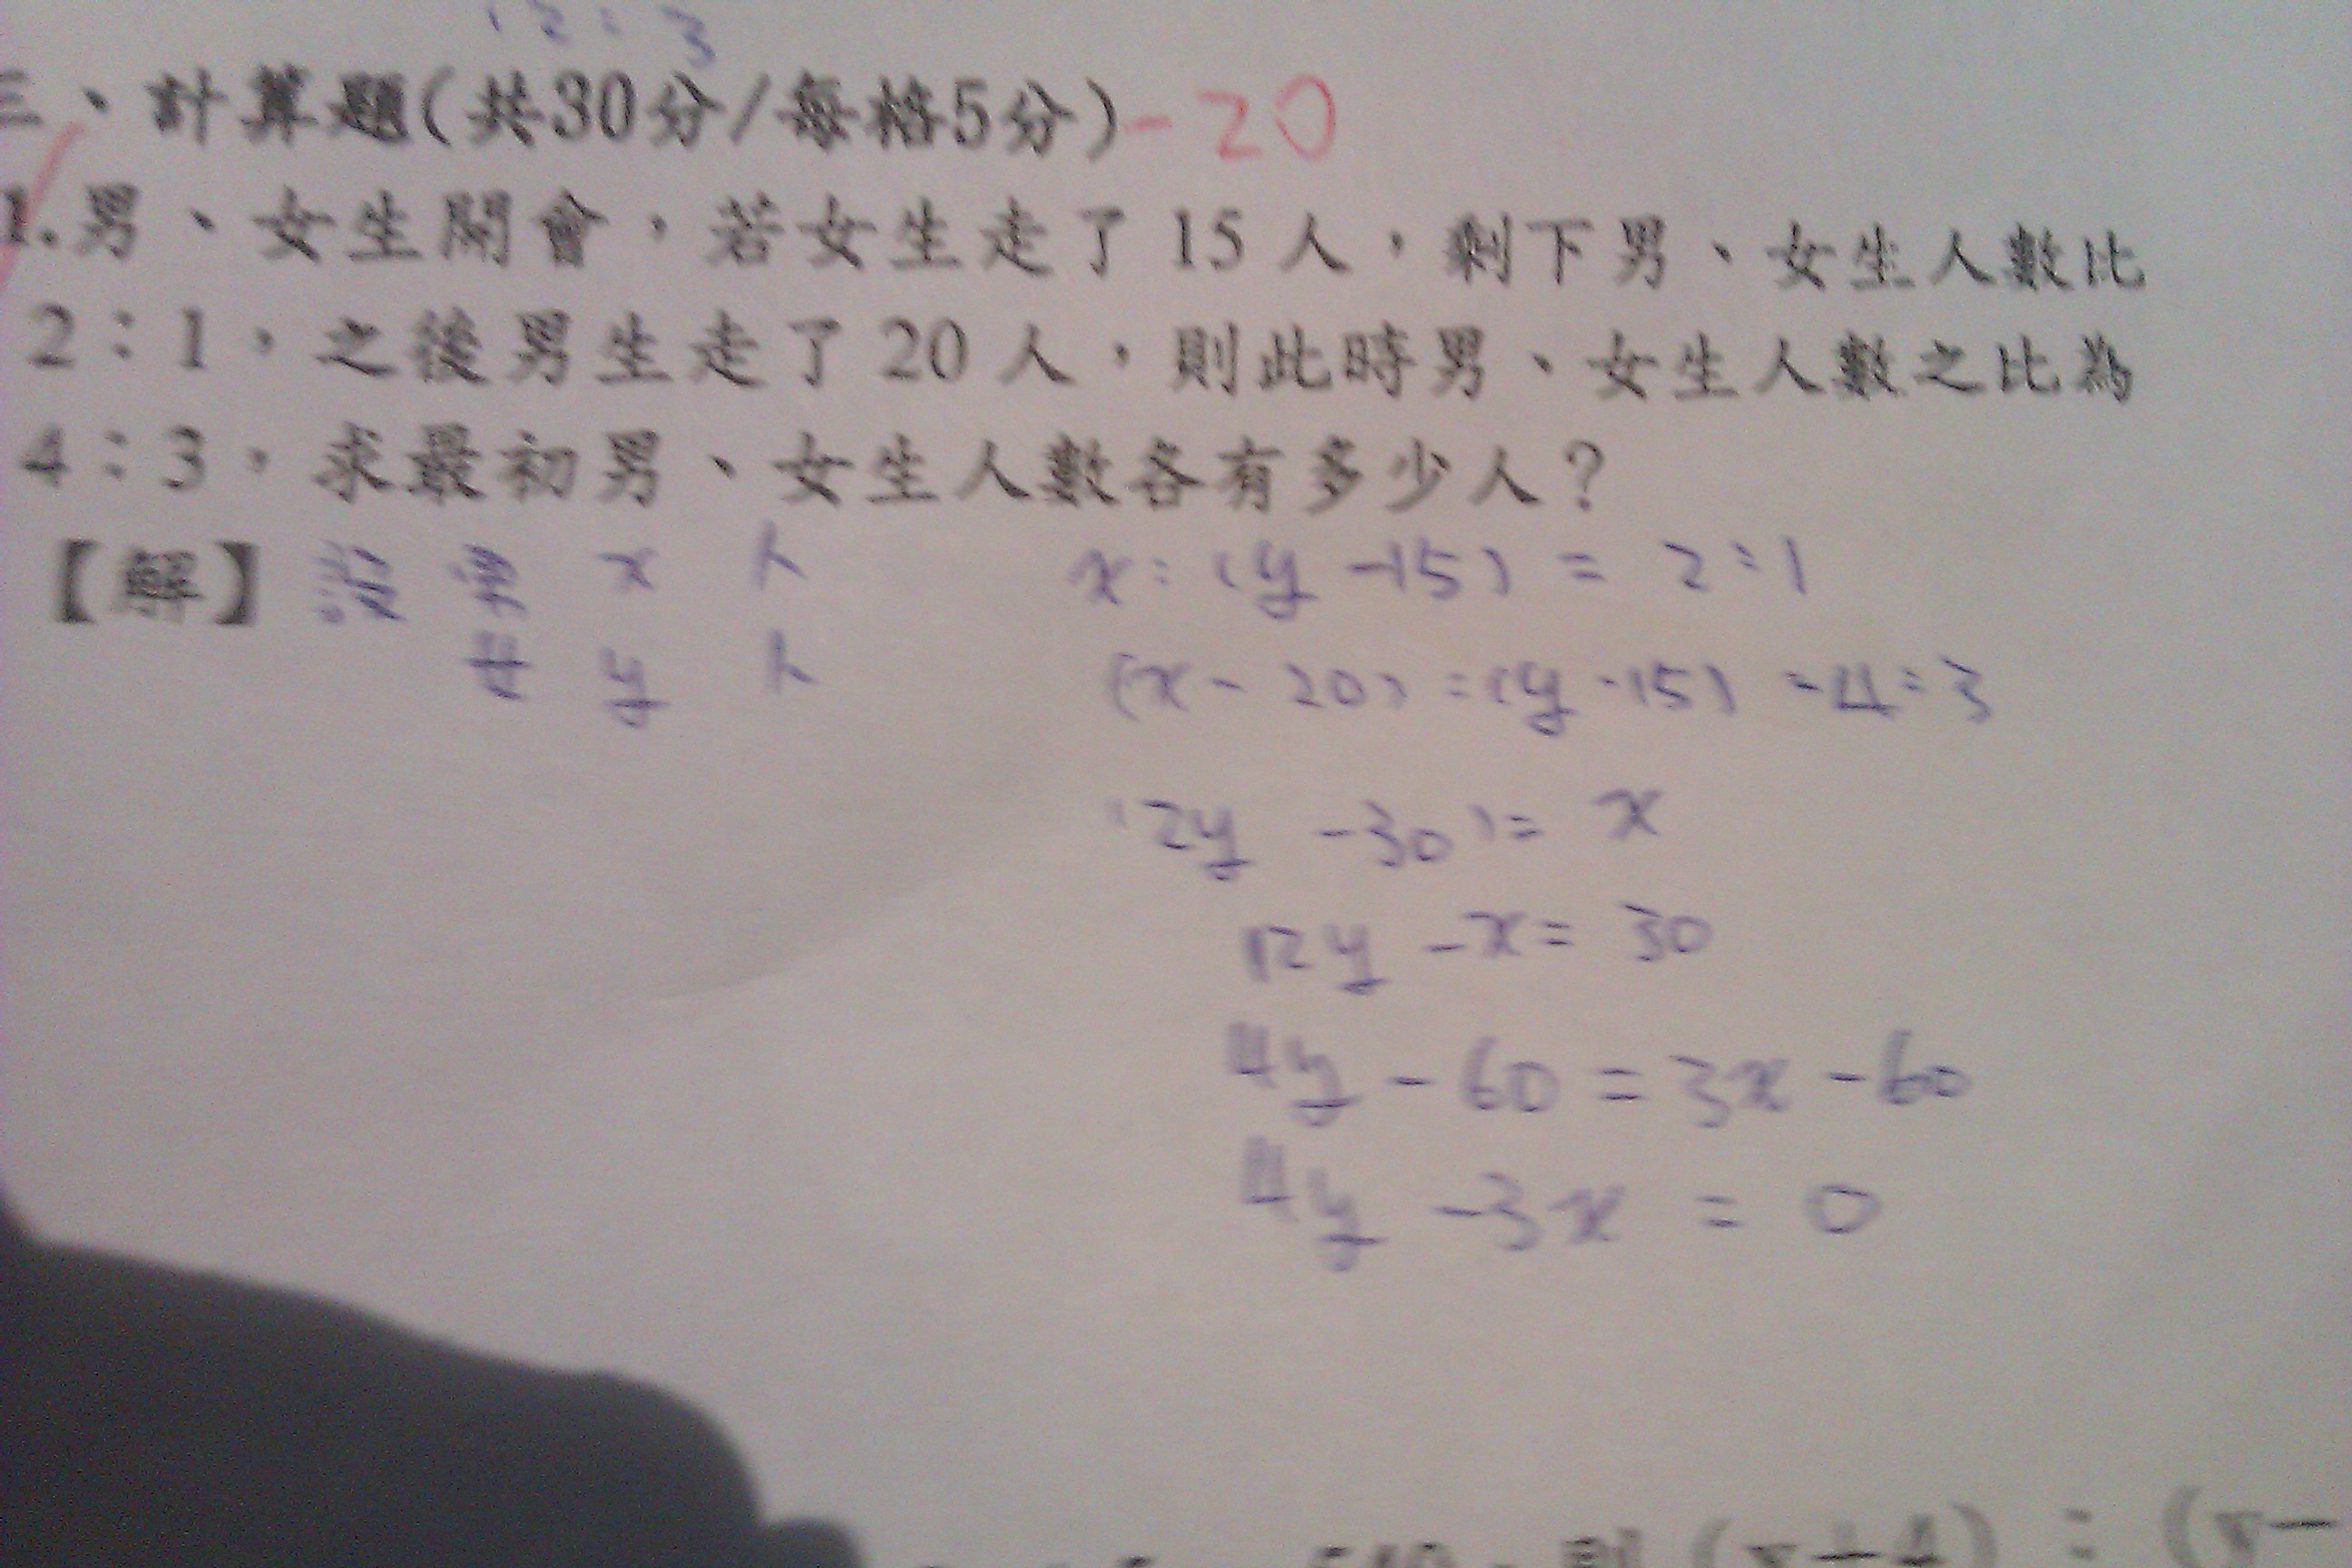 12:3
三、計算題(共30分/每格5分) -20
1.男、女生開會,若女生走了 15 人,剩下男、女生人數比
2:1,之後男生走了 20 人,則此時男、女生人數之比為
4:3,求最初男、女生人數各有多少人?
【解】設 男 x 人 x:(y-15) = 2:1
女 y 人 (x-20):(y-15) = 4:3
(2y -30) = x
2y -x = 30
4y - 60 = 3x - 60
4y -3x = 0